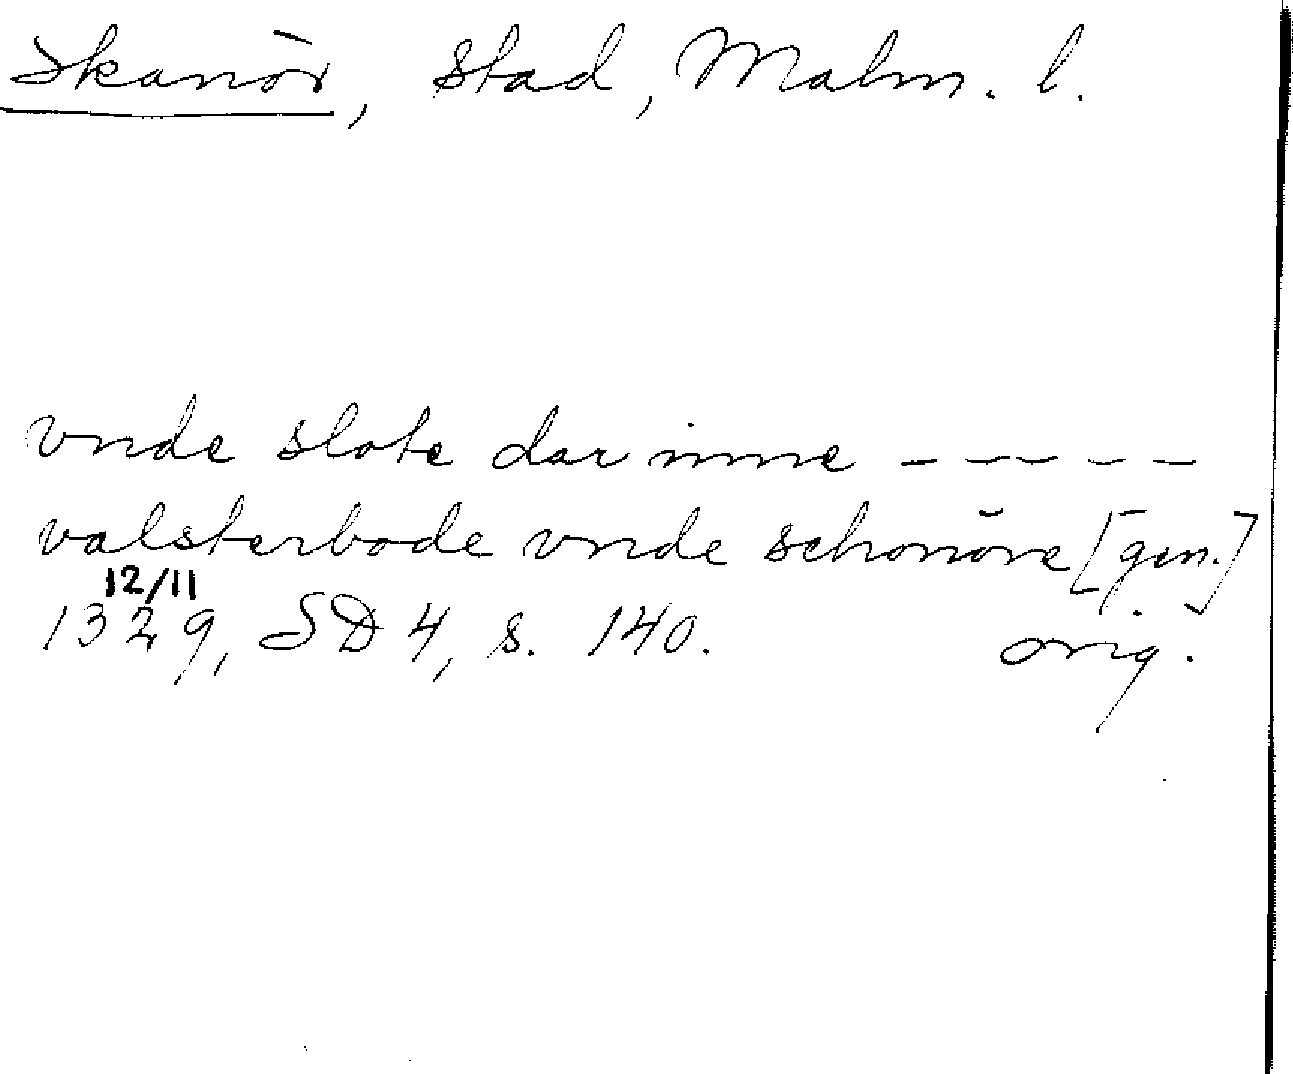 Skanör, stad, Malm. l.
vnde slote dar inne - - - - -
valsterbode vnde schonöre [gen.]
12/11
1329, SD 4, s. 140. orig.